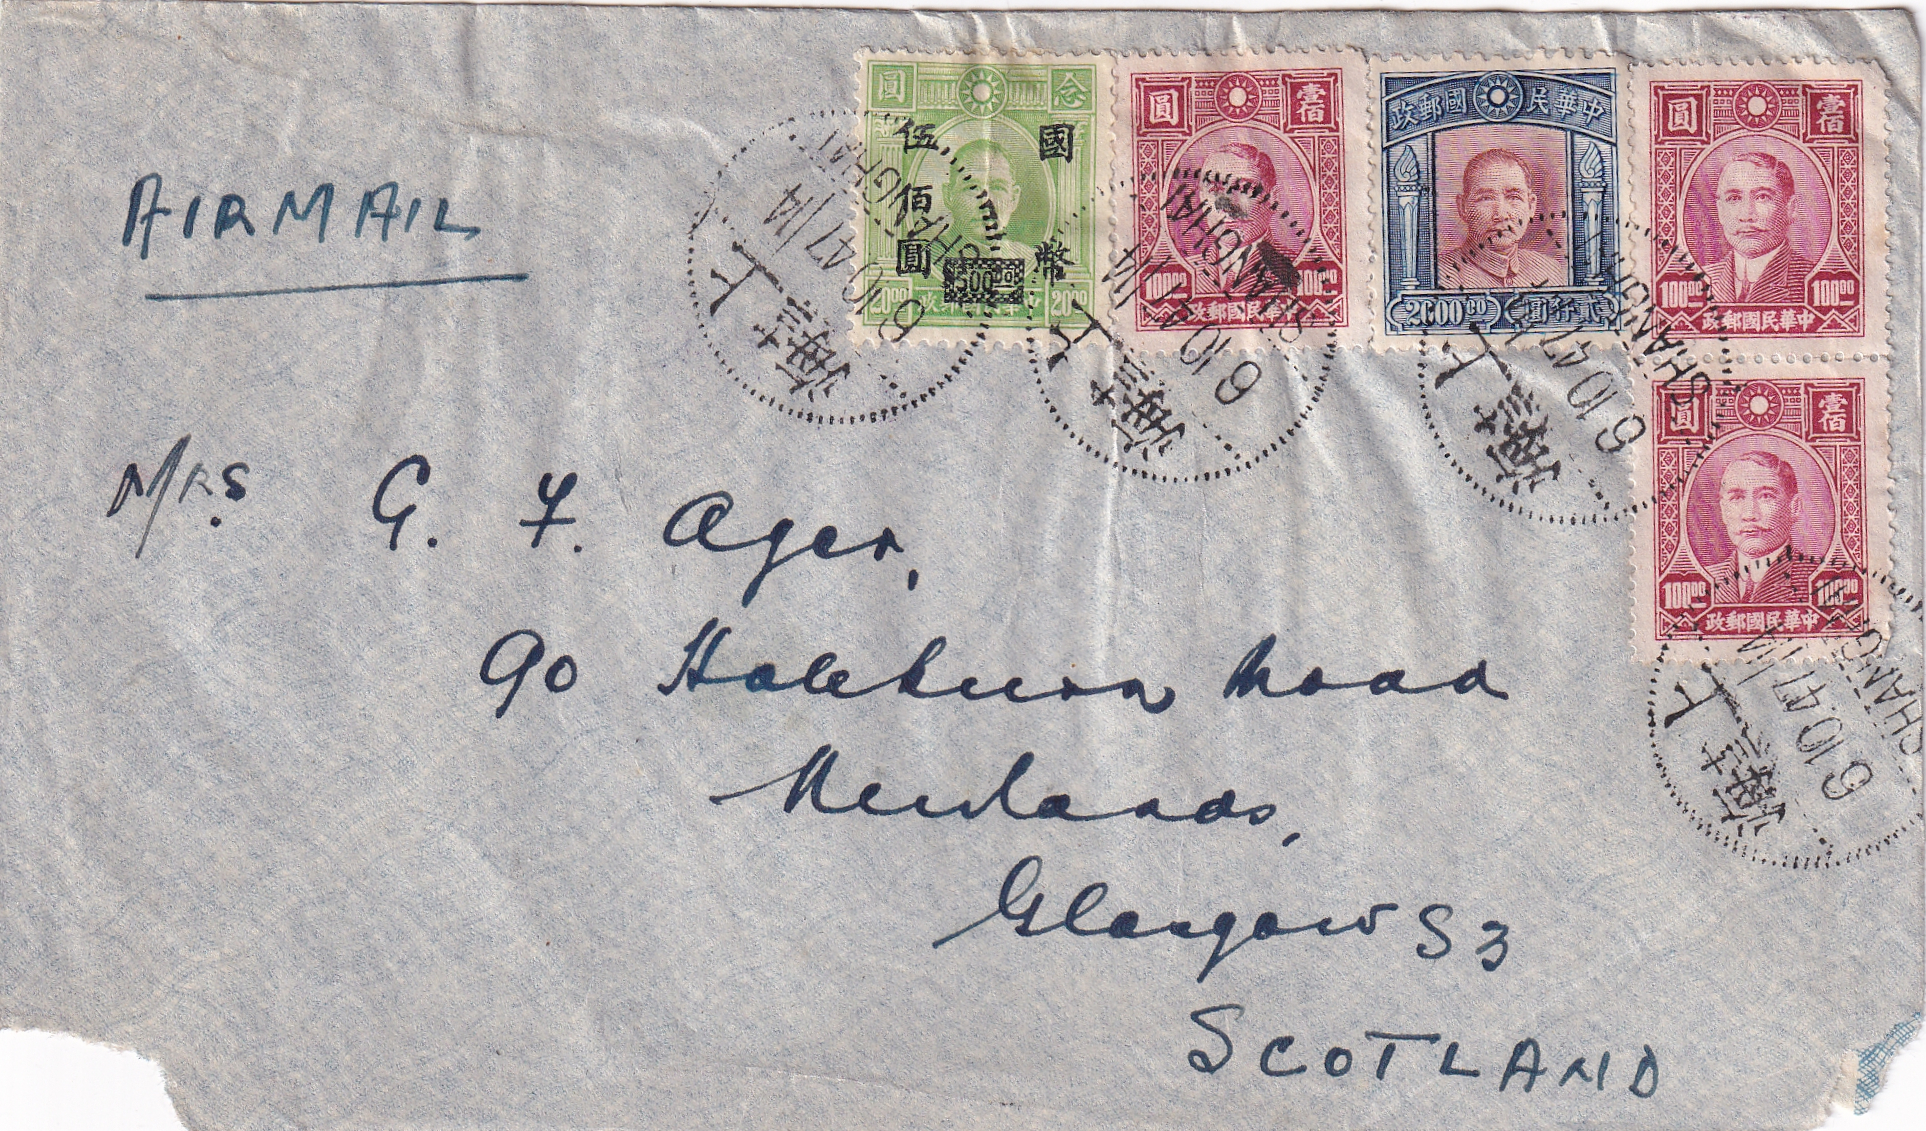 AIRMAIL
圓 念
伍 國
佰
圓 幣
500.00
20.00 政郵國民華中 20.00
圓 壹佰
100.00 100.00
政郵國民華中
政郵國 民華中
2000.00 圓仟貳
圓 壹佰
100.00 100.00
政郵國民華中
圓 壹佰
100.00 100.00
政郵國民華中
上海
SHANGHAI
6.10.47 /14
上海
SHANGHAI
6.10.47 /14
上海
SHANGHAI
6.10.47
上海
SHANGHAI
6.10.47 /14
Mrs G. F. Ager,
90 Holeburn Road
Newlands,
Glasgow S3
SCOTLAND